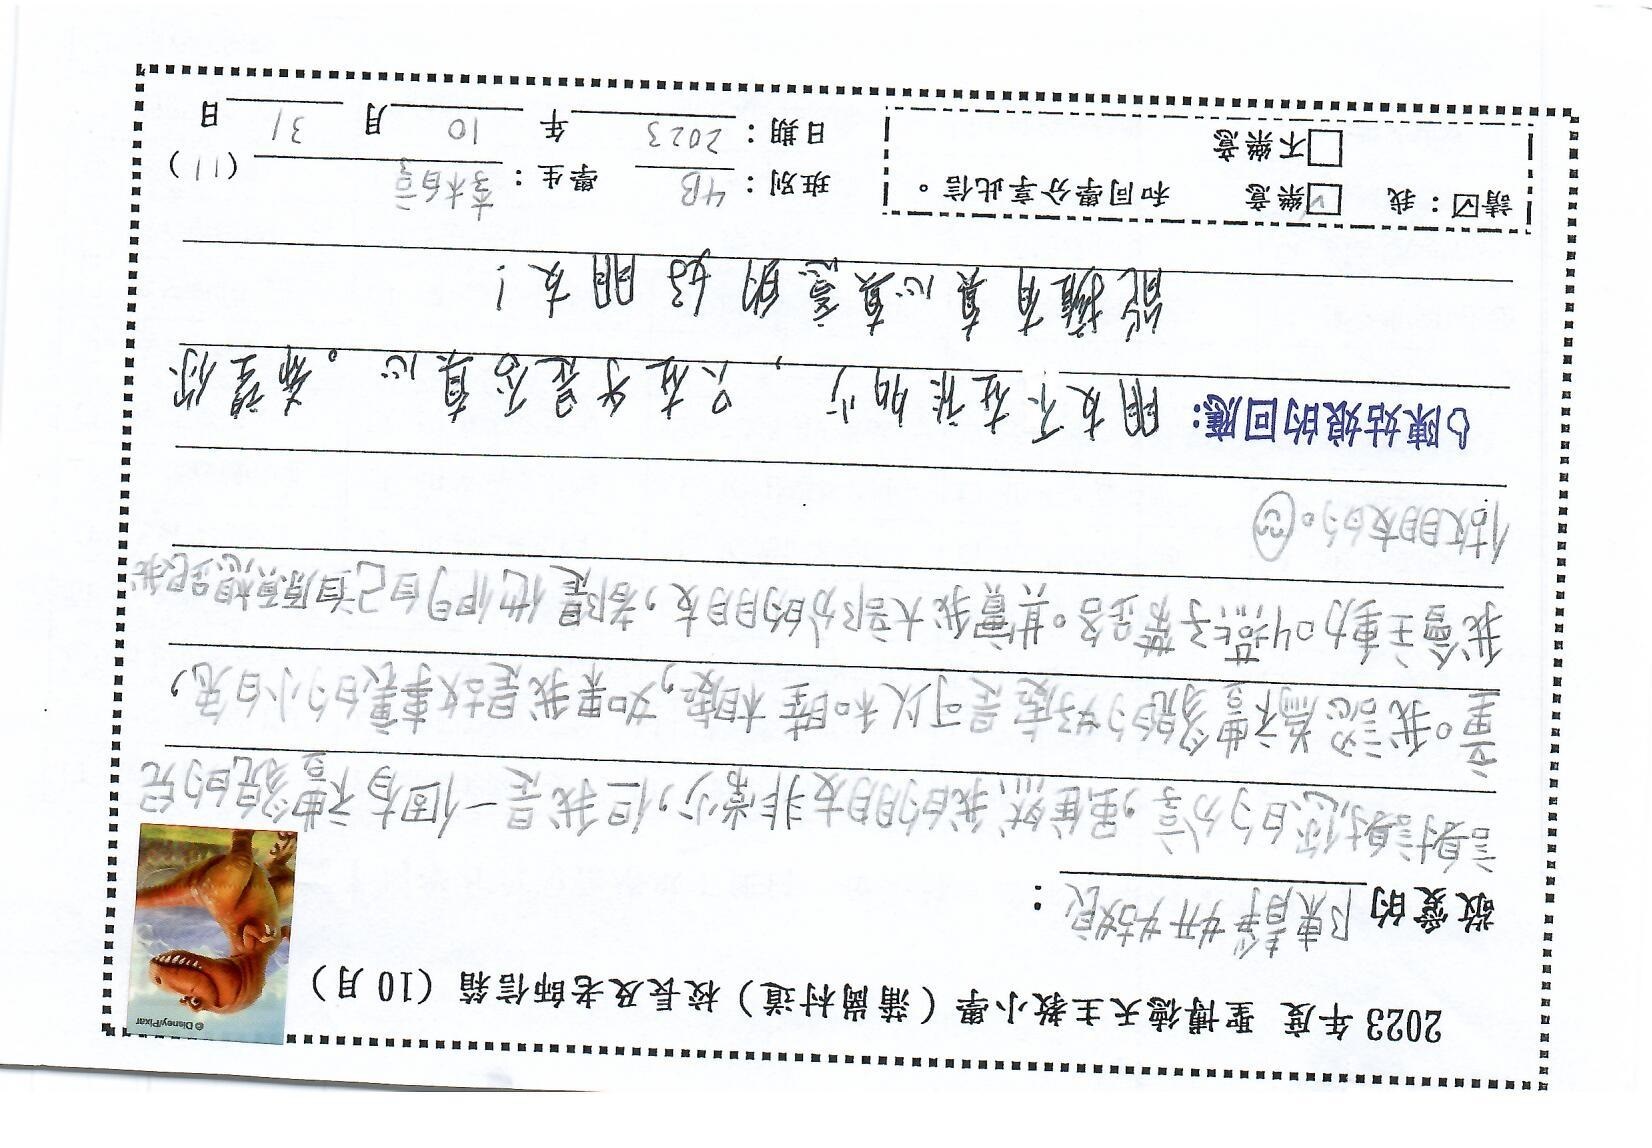 2023 年度 聖博德天主教小學（蒲崗村道）校長及老師信箱（10 月）
© Disney/Pixar
敬愛的 陳靜妍姑娘 ：
謝謝你的分享，雖然我的朋友非常少，但我是一個有豐富的兒
童。我認為不的好處是可以和睦相處，如果我是故事裏的小白兔，
我會主動叫茄子蛋分。其實我大部分的朋友，都是他們自己自願想跟我
做朋友的。
陳姑娘的回應： 朋友不在於多少，只在乎是否真心。希望你
能擁有真心真意的好朋友！
請☑：我 ☑樂意 和同學分享此信。
□不樂意
班別：4B 學生： （11）
日期：2023 年 10 月 31 日